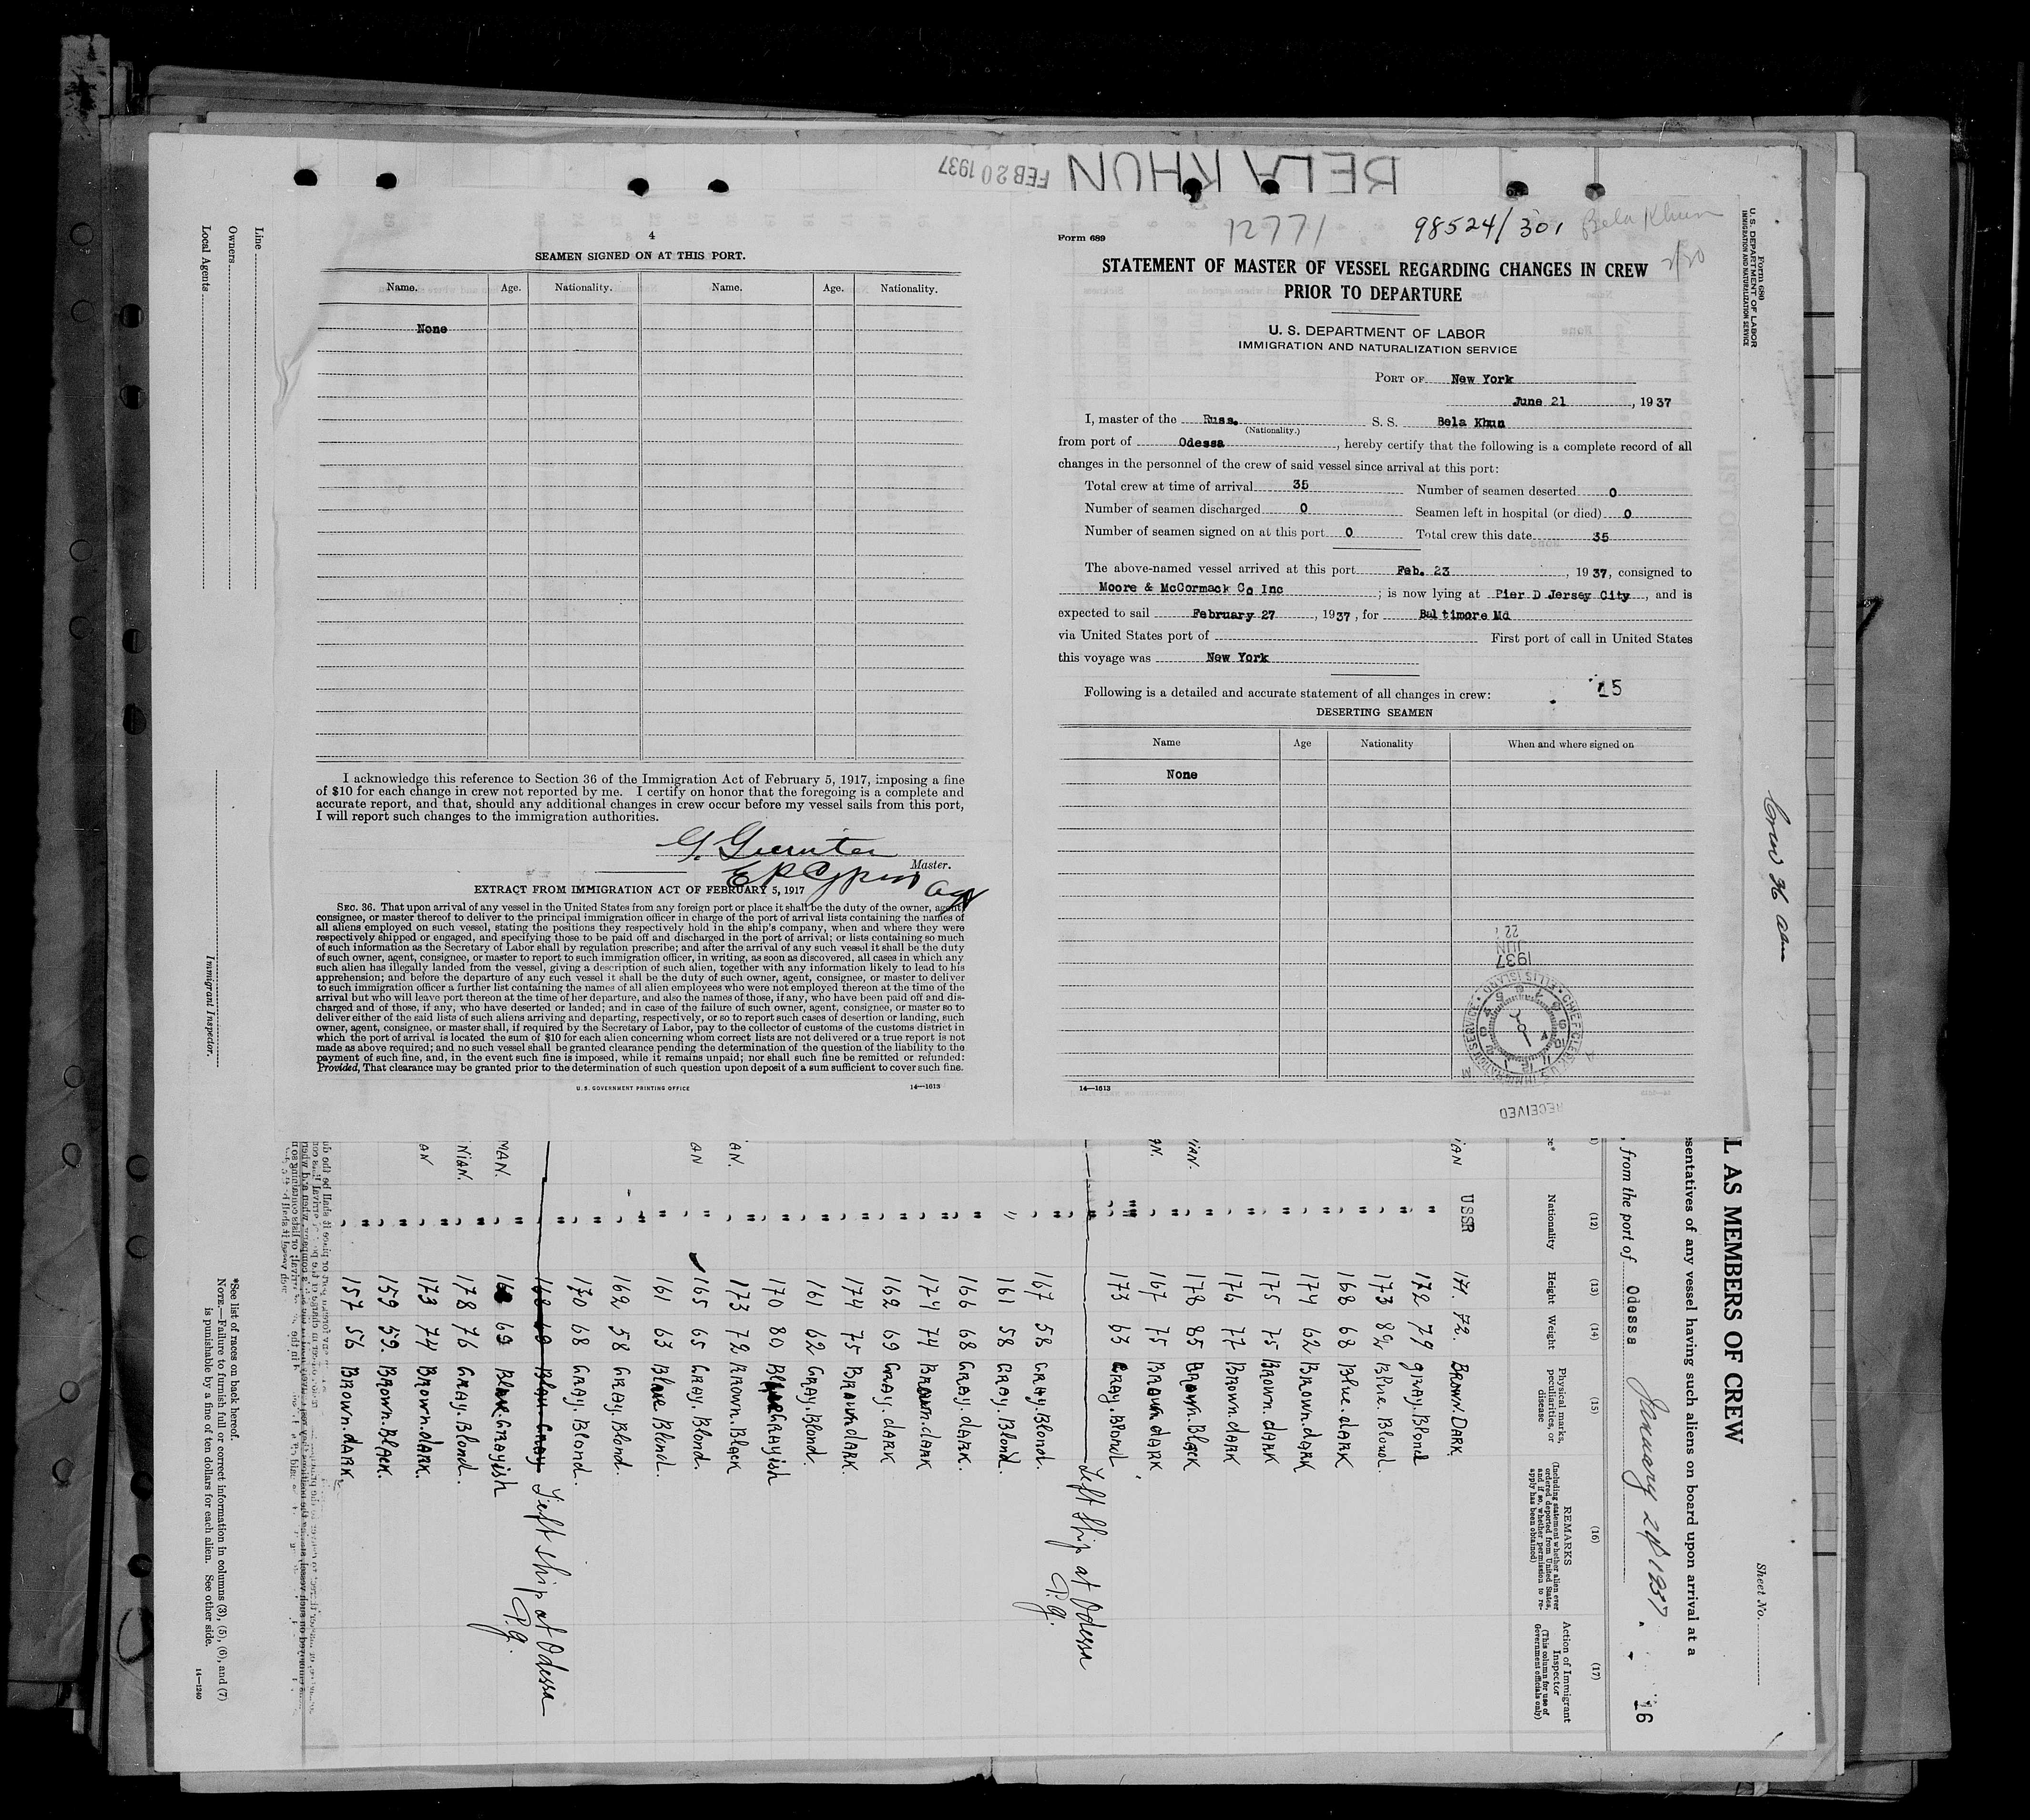 BELA KHUN
FEB 20 1937
12771
98524/301
Bela Khun
2/20
4
SEAMEN SIGNED ON AT THIS PORT.
Name. Age. Nationality. Name. Age. Nationality.
None
I acknowledge this reference to Section 36 of the Immigration Act of February 5, 1917, imposing a fine
of $10 for each change in crew not reported by me. I certify on honor that the foregoing is a complete and
accurate report, and that, should any additional changes in crew occur before my vessel sails from this port,
I will report such changes to the immigration authorities.
Master.
EXTRACT FROM IMMIGRATION ACT OF FEBRUARY 5, 1917
SEC. 36. That upon arrival of any vessel in the United States from any foreign port or place it shall be the duty of the owner, agent,
consignee, or master thereof to deliver to the principal immigration officer in charge of the port of arrival lists containing the names of
all aliens employed on such vessel, stating the positions they respectively hold in the ship's company, when and where they were
respectively shipped or engaged, and specifying those to be paid off and discharged in the port of arrival; or lists containing so much
of such information as the Secretary of Labor shall by regulation prescribe; and after the arrival of any such vessel it shall be the duty
of such owner, agent, consignee, or master to report to such immigration officer, in writing, as soon as discovered, all cases in which any
such alien has illegally landed from the vessel, giving a description of such alien, together with any information likely to lead to his
apprehension; and before the departure of any such vessel it shall be the duty of such owner, agent, consignee, or master to deliver
to such immigration officer a further list containing the names of all alien employees who were not employed thereon at the time of the
arrival but who will leave port thereon at the time of her departure, and also the names of those, if any, who have been paid off and dis-
charged and of those, if any, who have deserted or landed; and in case of the failure of such owner, agent, consignee, or master so to
deliver either of the said lists of such aliens arriving and departing, respectively, or so to report such cases of desertion or landing, such
owner, agent, consignee, or master shall, if required by the Secretary of Labor, pay to the collector of customs of the customs district in
which the port of arrival is located the sum of $10 for each alien concerning whom correct lists are not delivered or a true report is not
made as above required; and no such vessel shall be granted clearance pending the determination of the question of the liability to the
payment of such fine, and, in the event such fine is imposed, while it remains unpaid; nor shall such fine be remitted or refunded:
Provided, That clearance may be granted prior to the determination of such question upon deposit of a sum sufficient to cover such fine.
U. S. GOVERNMENT PRINTING OFFICE 14—1613
Form 689
STATEMENT OF MASTER OF VESSEL REGARDING CHANGES IN CREW
PRIOR TO DEPARTURE
U. S. DEPARTMENT OF LABOR
IMMIGRATION AND NATURALIZATION SERVICE
PORT OF New York
June 21, 1937
I, master of the Russ. S. S. Bela Khun
(Nationality.)
from port of Odessa, hereby certify that the following is a complete record of all
changes in the personnel of the crew of said vessel since arrival at this port:
Total crew at time of arrival 35 Number of seamen deserted 0
Number of seamen discharged 0 Seamen left in hospital (or died) 0
Number of seamen signed on at this port 0 Total crew this date 35
The above-named vessel arrived at this port Feb. 23, 1937, consigned to
Moore & McCormack Co Inc; is now lying at Pier D Jersey City, and is
expected to sail February 27, 1937, for Baltimore Md
via United States port of First port of call in United States
this voyage was New York
Following is a detailed and accurate statement of all changes in crew:
15
DESERTING SEAMEN
Name Age Nationality When and where signed on
None
14—1613
1937
JUN
22
CHIEF CLERK U.S. IMMIGRATION SERVICE ELLIS ISLAND
RECEIVED
Form 680
U. S. DEPARTMENT OF LABOR
IMMIGRATION AND NATURALIZATION SERVICE
Crew 36
Sheet No.
L AS MEMBERS OF CREW
sentatives of any vessel having such aliens on board upon arrival at a
from the port of Odessa January 28 1937
16
(12) (13) (14) (15) (16) (17)
Nationality Height Weight Physical marks, peculiarities, or disease
REMARKS
(Including statement whether alien ever ordered deported from United States, and if so, whether permission to reapply has been obtained)
Action of Immigrant Inspector
(This column for use of Government officials only)
IAN USSR 171. 72. BROWN DARK
" 172 79 GRAY. Blond
" 173 82 Blue. Blond.
" 168 68 Blue. dARK
" 174 62 BROWN. dARK
" 175 75 BROWN. dARK
" 176 77 BROWN. dARK
IAN. " 178 85 BROWN. Black
N. " 167 75 BROWN. dARK
" 173 63 GRAY. Blond
" Left ship at Odessa P.g.
" 167 58 GRAY. Blond.
" 161 58 GRAY. Blond.
" 166 68 GRAY. dARK.
" 174 74 BROWN. dARK
" 162 69 GRAY. dARK
" 174 75 BROWN. dARK.
" 161 62 GRAY. Blond.
" 170 80 GRAYish
AN. " 173 72 BROWN. Black
AN " 165 65 GRAY. Blond.
" 161 63 Blue Blond.
" 162 58 GRAY. Blond.
" 170 68 GRAY. Blond.
" 168 69 Blue. GRAY Left ship at Odessa P.g.
MAN. " 168 69 Blue. GRAYish
NIAN. " 178 76 GRAY. Blond.
AN " 173 74 BROWN. dARK.
" 159 59. BROWN. BlACK.
" 157 56 BROWN. dARK.
*See list of races on back hereof.
NOTE.—Failure to furnish full or correct information in columns (3), (5), (6), and (7)
is punishable by a fine of ten dollars for each alien. See other side.
14—1240
Line
Owners
Local Agents
Immigrant Inspector.